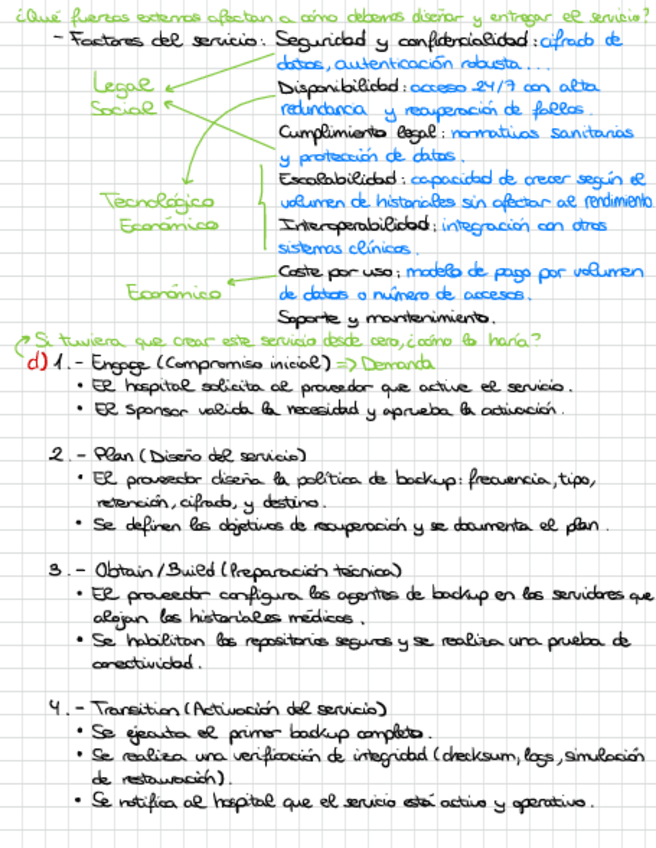 ¿Qué fuerzas externas afectan a cómo debemos diseñar y entregar el servicio?
- Factores del servicio: Seguridad y confidencialidad: cifrado de
datos, autenticación robusta...
Legal
Social
Disponibilidad: acceso 24/7 con alta
redundancia y recuperación de fallos.
Cumplimiento legal: normativas sanitarias
y protección de datos.
Escalabilidad: capacidad de crecer según el
volumen de historiales sin afectar al rendimiento
Tecnológico
Económico
Interoperabilidad: integración con otros
sistemas clínicos.
Coste por uso: modelo de pago por volumen
de datos o número de accesos.
Económico
Soporte y mantenimiento.
Si tuviera que crear este servicio desde cero, ¿cómo lo haría?
d) 1.- Engage (Compromiso inicial) => Demanda
• El hospital solicita al proveedor que active el servicio.
• El sponsor valida la necesidad y aprueba la activación.
2.- Plan (Diseño del servicio)
• El proveedor diseña la política de backup: frecuencia, tipo,
retención, cifrado, y destino.
• Se definen los objetivos de recuperación y se documenta el plan.
3.- Obtain/Build (Preparación técnica)
• El proveedor configura los agentes de backup en los servidores que
alojan los historiales médicos.
• Se habilitan los repositorios seguros y se realiza una prueba de
conectividad.
4.- Transition (Activación del servicio)
• Se ejecuta el primer backup completo.
• Se realiza una verificación de integridad (checksum, logs, simulación
de restauración).
• Se notifica al hospital que el servicio está activo y operativo.